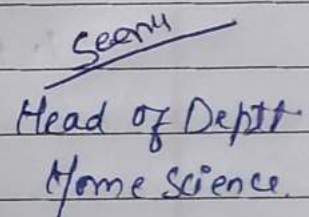 Seenu
Head of Deptt
Home Science.